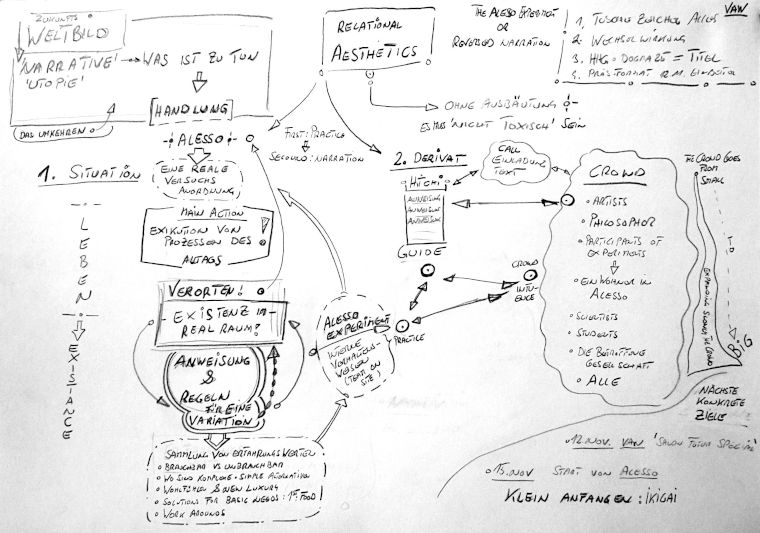 ZUKUNFTS
WELTBILD
'NARRATIVE'
'UTOPIE'
WAS IST ZU TUN
[HANDLUNG]
DAS UMKEHREN
ALESSO
1. SITUATION
EINE REALE
VERSUCHS
ANORDNUNG
MAIN ACTION
EXIKUTION VON
PROZESSEN DES
ALLTAGS
LEBEN
EXISTANCE
VERORTEN!
EXISTENZ IM
REALRAUM?
ANWEISUNG
&
REGELN
FÜR EINE
VARIATION
SAMMLUNG VON ERFAHRUNGSWERTEN
BRAUCHBAR VS UNBRAUCHBAR
WO SIND KOMPLEXE - SIMPLE
WOHLFÜHLEN & NEW LUXURY
SOLUTIONS FOR BASIC NEEDS: 1st FOOD
WORK AROUNDS
RELATIONAL
AESTHETICS
FIRST: PRACTICE
SECOUND: NARRATION
ALESSO
EXPERIMENT
INTERNE
VERHALTENS-
WEISEN
(TEAM ON
SITE)
THE ALESSO EXPEDITION
OR
REVERSED NARRATION
VAN
1,
2. WECHSELWIRKUNG
3. HKG - DOGMA25 = TITEL
OHNE AUSBEUTUNG
ES MUSS 'NICHT TOXISCH' SEIN
2. DERIVAT
CALL
EINLADUNG
TEXT
HITCHI
ANWEISUNG
ANWEISUNG
ANWEISUNG
GUIDE
CROWD
PRACTICE
CROWD
ARTISTS
PHILOSOPHER
PARTICIPANTS OF
EXPERIMENTS
EINWOHNER IN
ALESSO
SCIENTISTS
STUDENTS
DIE
GESELLSCHAFT
ALLE
THE CROWD GOES
FROM
SMALL
TO
BIG
EXPANDING SLOWLY THE CROWD
NÄCHSTE
KONKRETE
ZIELE
12. NOV. VAN 'SALON FUTUR SPECIAL'
15. NOV START VON ALESSO
KLEIN ANFANGEN: IKIGAI